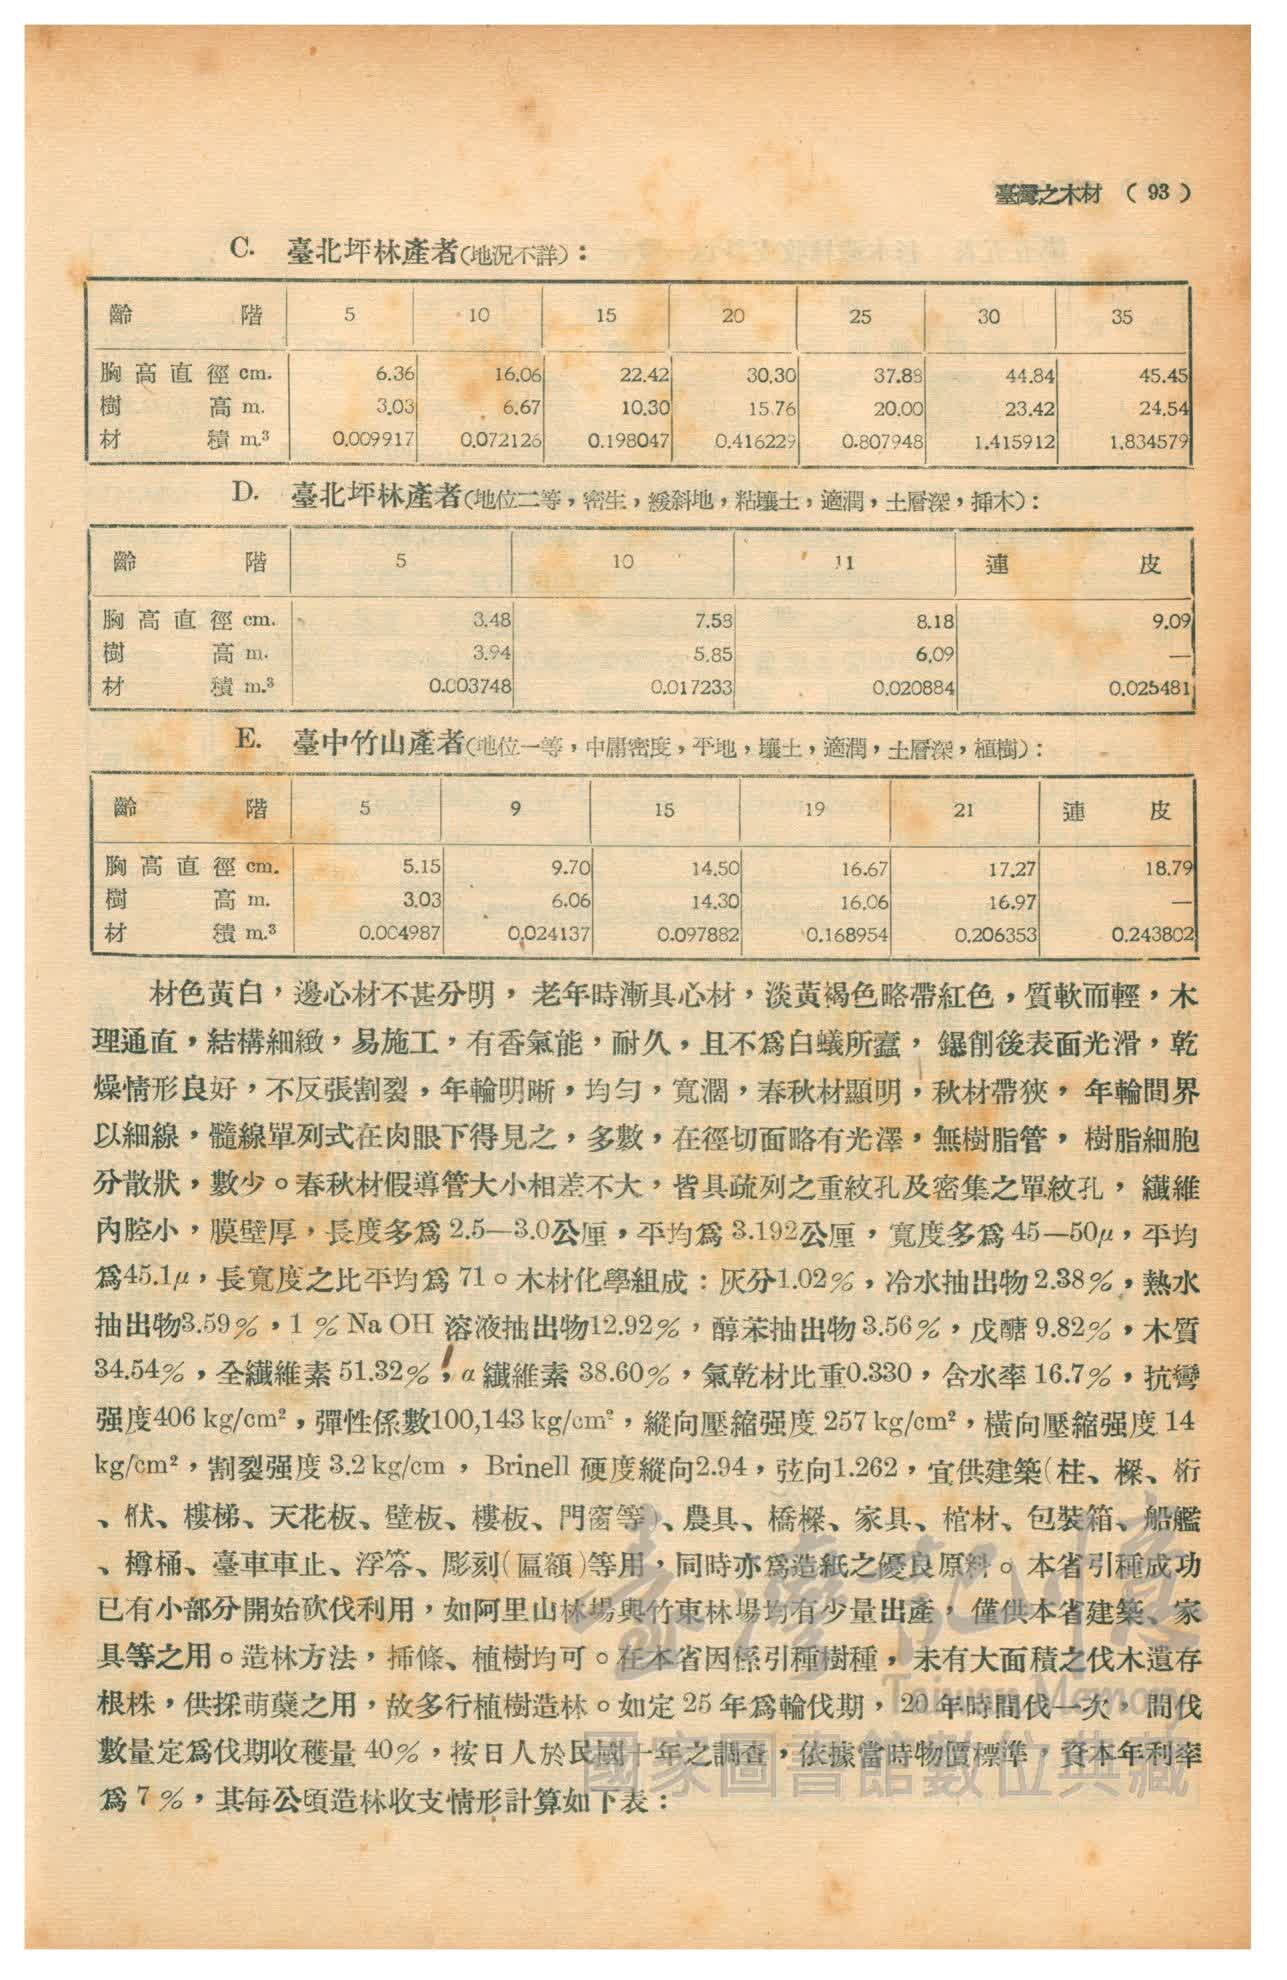 臺灣之木材 ( 93 )
C. 臺北坪林產者(地況不詳)：
齡階 5 10 15 20 25 30 35
胸高直徑 cm. 6.36 16.06 22.42 30.30 37.88 44.84 45.45
樹高 m. 3.03 6.67 10.30 15.76 20.00 23.42 24.54
材積 m.³ 0.009917 0.072126 0.198047 0.416229 0.807948 1.415912 1.834579
D. 臺北坪林產者(地位二等，密生，緩斜地，粘壤土，適潤，土層深，揷木)：
齡階 5 10 11 連皮
胸高直徑 cm. 3.48 7.58 8.18 9.09
樹高 m. 3.94 5.85 6.09 —
材積 m.³ 0.003748 0.017233 0.020884 0.025481
E. 臺中竹山產者(地位一等，中庸密度，平地，壤土，適潤，土層深，植樹)：
齡階 5 9 15 19 21 連皮
胸高直徑 cm. 5.15 9.70 14.50 16.67 17.27 18.79
樹高 m. 3.03 6.06 14.30 16.06 16.97 —
材積 m.³ 0.004987 0.024137 0.097882 0.168954 0.206353 0.243802
材色黃白，邊心材不甚分明，老年時漸具心材，淡黃褐色略帶紅色，質軟而輕，木
理通直，結構細緻，易施工，有香氣能，耐久，且不爲白蟻所蠹，鑤削後表面光滑，乾
燥情形良好，不反張割裂，年輪明晰，均勻，寬濶，春秋材顯明，秋材帶狹，年輪間界
以細線，髓線單列式在肉眼下得見之，多數，在徑切面略有光澤，無樹脂管，樹脂細胞
分散狀，數少。春秋材假導管大小相差不大，皆具疏列之重紋孔及密集之單紋孔，纖維
內腔小，膜壁厚，長度多爲 2.5—3.0公厘，平均爲 3.192公厘，寬度多爲 45—50μ，平均
爲45.1μ，長寬度之比平均爲 71。木材化學組成：灰分1.02%，冷水抽出物 2.38%，熱水
抽出物3.59%，1 % Na OH 溶液抽出物12.92%，醇苯抽出物 3.56%，戊醣 9.82%，木質
34.54%，全纖維素 51.32%，α 纖維素 38.60%，氣乾材比重0.330，含水率 16.7%，抗彎
强度406 kg/cm²，彈性係數100,143 kg/cm²，縱向壓縮强度 257 kg/cm²，橫向壓縮强度 14
kg/cm²，割裂强度 3.2 kg/cm，Brinell 硬度縱向2.94，弦向1.262，宜供建築(柱、樑、桁
、栿、樓梯、天花板、壁板、樓板、門窗等)、農具、橋樑、家具、棺材、包裝箱、船艦
、樽桶、臺車車止、浮筶、彫刻(匾額)等用，同時亦爲造紙之優良原料。本省引種成功
已有小部分開始砍伐利用，如阿里山林場與竹東林場均有少量出產，僅供本省建築、家
具等之用。造林方法，揷條、植樹均可。在本省因係引種樹種，未有大面積之伐木遺存
根株，供採萌蘗之用，故多行植樹造林。如定 25 年爲輪伐期，20 年時間伐一次，間伐
數量定爲伐期收穫量 40%，按日人於民國十年之調查，依據當時物價標準，資本年利率
爲 7 %，其每公頃造林收支情形計算如下表：
臺灣記憶
Taiwan Memory
國家圖書館數位典藏